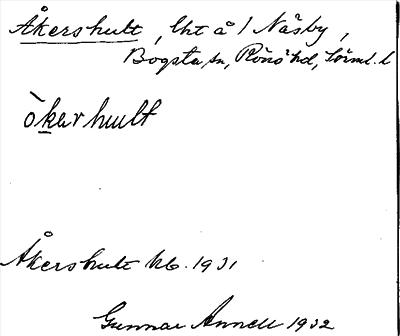 Åkershult, lht å / Näsby,
Bogsta sn, Rönö hd, Sörml. l
òkarhult
Åkershult kb. 1931
Gunnar Annell 1932